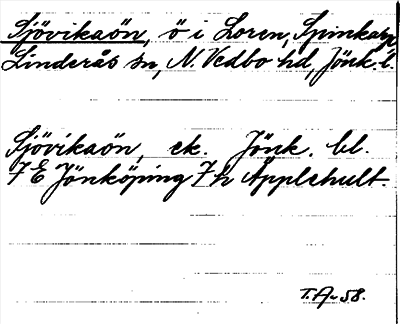 Sjövikaön, ö i Loren, Spinkarp,
Linderås sn, N. Vedbo hd, Jönk. l.
Sjövikaön, ek. Jönk. bl.
7 E Jönköping 7 h Äpplehult.
T.A-58.